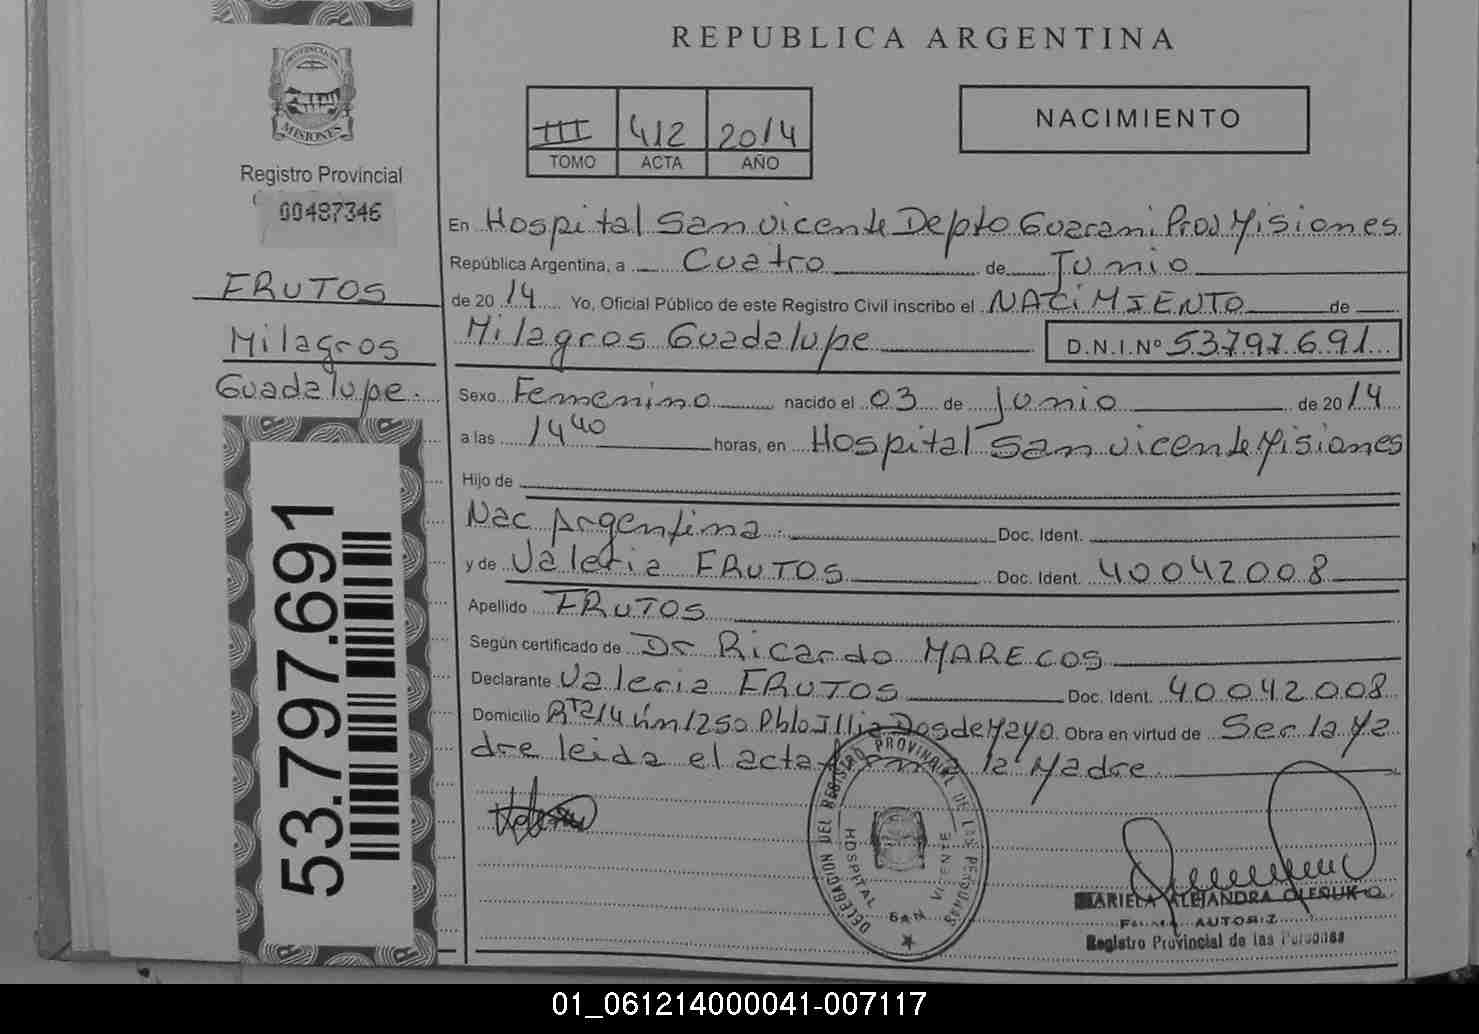 REPUBLICA ARGENTINA
PROVINCIA DE
MISIONES
Registro Provincial
00487346
FRUTOS
Milagros
Guadalupe.
53.797.691
III 412 2014
TOMO ACTA AÑO
NACIMIENTO
En Hospital San vicente Depto Guarani Prov Misiones
República Argentina, a Cuatro de Junio
de 2014 Yo, Oficial Público de este Registro Civil inscribo el NACIMIENTO de
Milagros Guadalupe D.N.I.Nº 53.797.691
Sexo Femenino nacido el 03 de Junio de 2014
a las 14 40 horas, en Hospital San vicente Misiones
Hijo de
Nac Argentina. Doc. Ident.
y de Valeria FRUTOS Doc. Ident. 40042008
Apellido FRUTOS
Según certificado de Dr Ricardo MARECOS
Declarante Valeria FRUTOS Doc. Ident. 40042008
Domicilio Rta 14 km 1250 Pblo Illia Dos de Mayo Obra en virtud de Ser la Ma
dre leida el acta la Madre
DELEGACION DEL REGISTRO PROVINCIAL DE LAS PERSONAS
HOSPITAL SAN VICENTE
MARIELA ALEJANDRA
AUTORIZ
Registro Provincial de las Personas
01_061214000041-007117